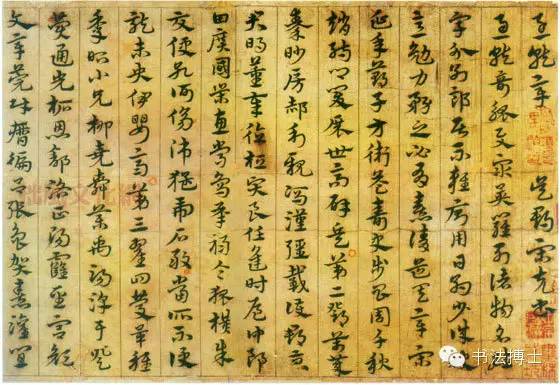 急就章 吳郡宋克書
急就奇觚與衆異羅列諸物名姓
字分別部居不雜廁用日約少誠快
意勉力務之必有憙請道其章宋
延年鄭子方衛益壽史步昌周千秋
趙孺卿爰展世高辟兵第二鄧萬歲
秦眇房郝利親馮漢彊戴護郡景
君明董奉德桓賢良任逢時侯仲郎
田廣國榮惠常烏承祿令狐橫朱
交便孔何傷師猛虎石敢當所不侵
龍未央伊嬰齊第三翟回慶畢稚
季昭小兄柳堯舜藥禹湯淳于登
費通光柘恩舒路正陽霍聖宮顏
文章莞財歷偏呂張魯賀憙灌宜
书法搏士